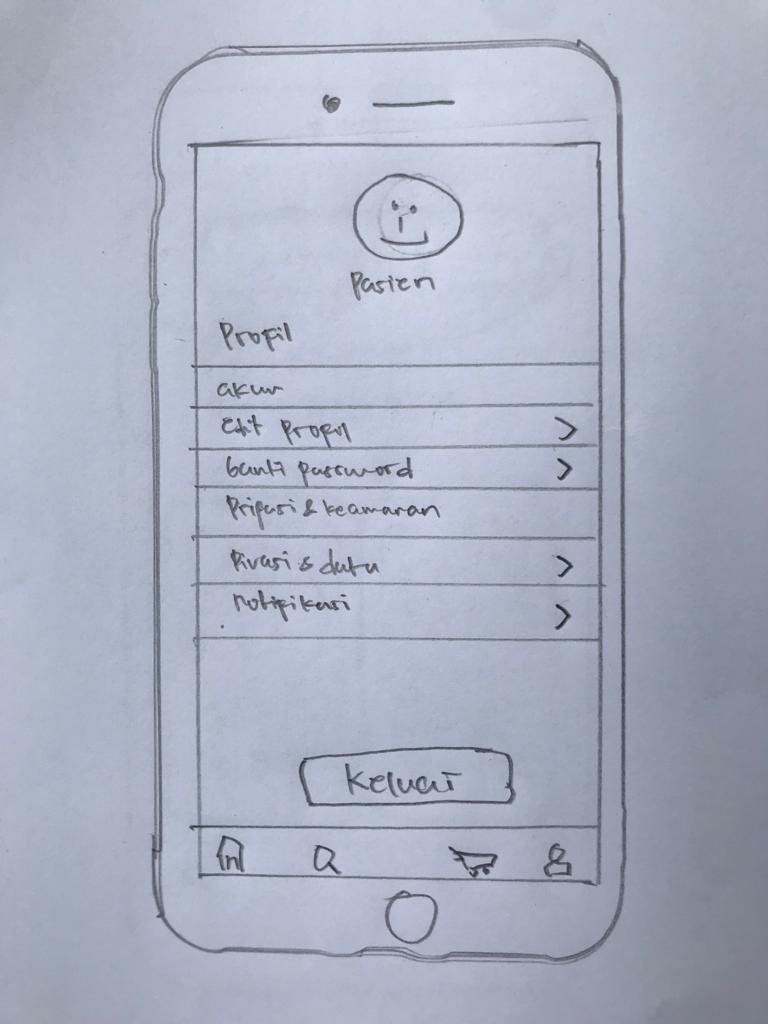 Pasien
Profil
akun
Edit Profil
Ganti password
Pripasi & keamanan
Pivasi & data
Notifikasi
Keluar